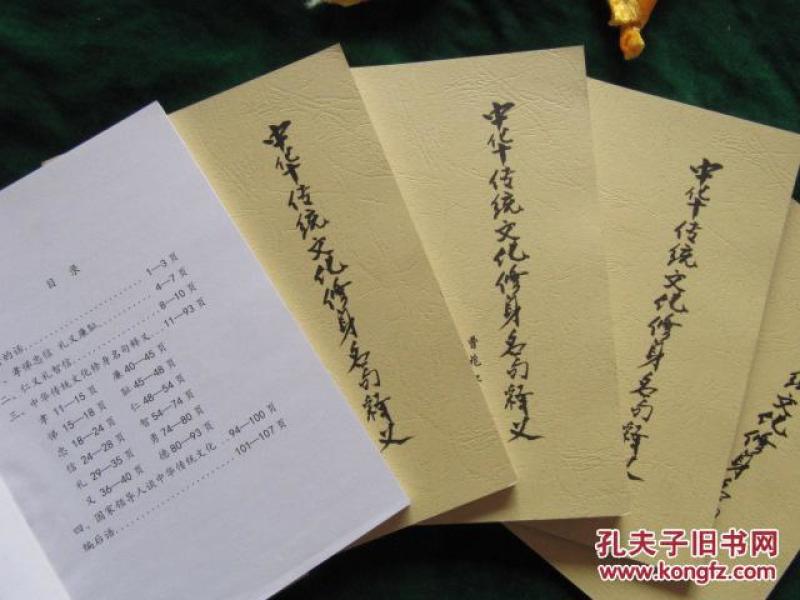 目录
的话 1—3页
、孝悌忠信 礼义廉耻 4—7页
二、仁义礼智信 8—10页
三、中华传统文化修身名句释义 11—93页
孝 11—15页 廉 40—45页
悌 15—18页 耻 45—48页
忠 18—24页 仁 48—54页
信 24—28页 智 54—74页
礼 29—35页 勇 74—80页
义 36—40页 德 80—93页
四、国家领导人谈中华传统文化 94—100页
编后语 101—107页
中华传统文化修身名句释义
中华传统文化修身名句释义
中华传统文化修身名句释
文化修身
孔夫子旧书网
www.kongfz.com